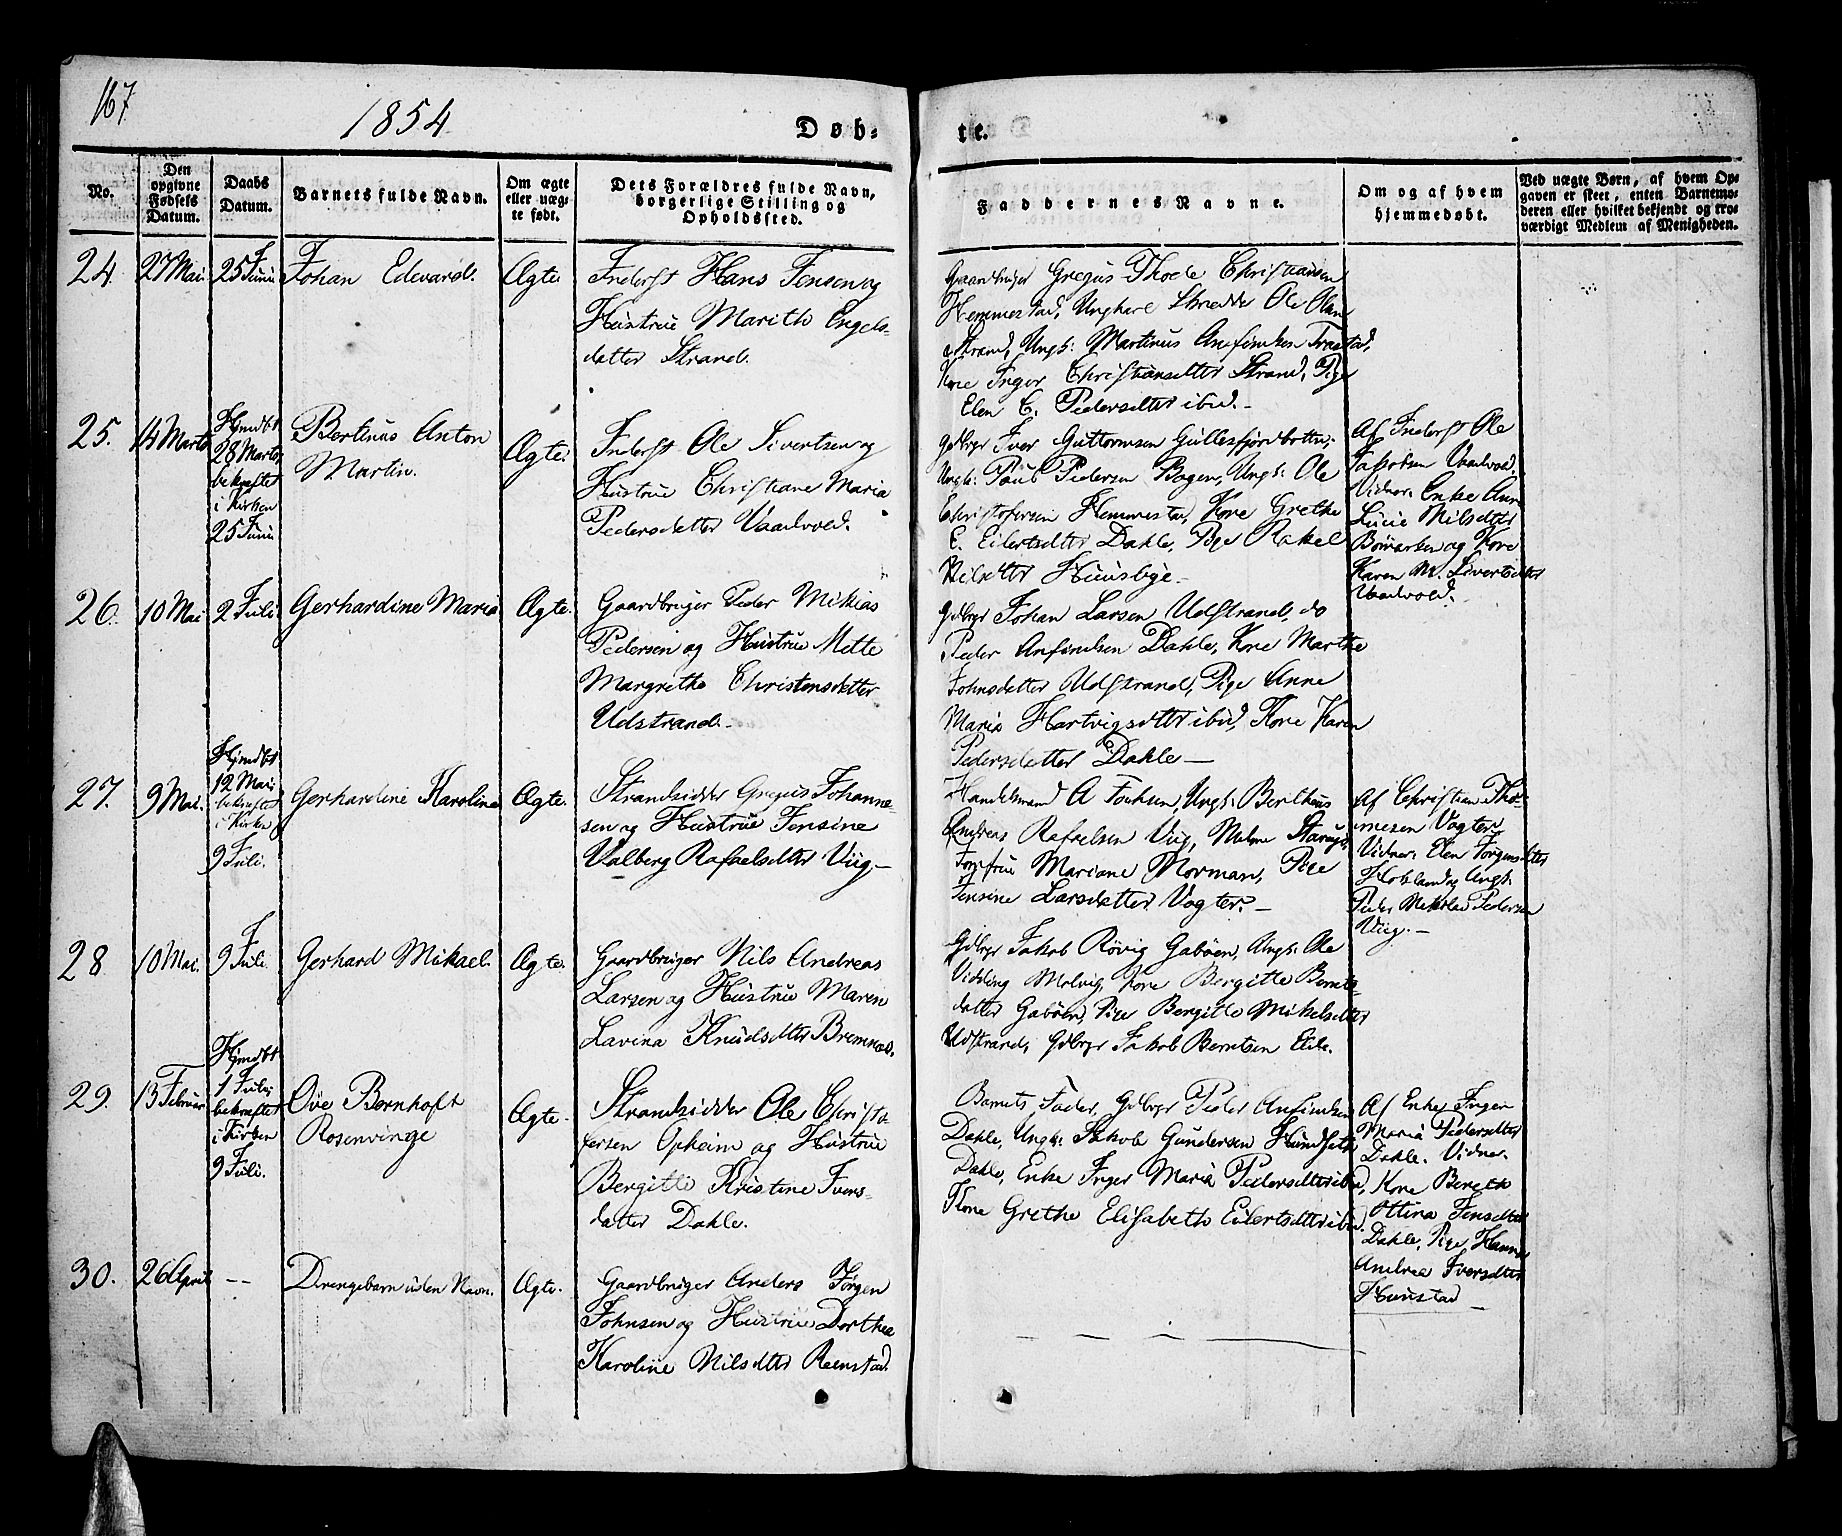 167
1854
Døb-
te.
No.
Den
opgivne
Fødsels
Datum.
Daabs
Datum.
Barnets fulde Navn.
Om ægte
eller uæg-
te født.
Dets Forældres fulde Navn,
borgerlige Stilling og
Opholdssted.
Faddernes Navne.
Om og af hvem
hjemmedøbt.
Ved uægte Børn, af hvem Op-
gaven er skeet, enten Barnemo-
deren eller hvilket bekjendt og tro-
værdigt Medlem af Menigheden.
24.
27 Mai.
25 Juni
Johan Edevard.
Ægte.
Inderst Hans Jensen og
Hustrue Marith Engels-
datter Strand.
Gaardbruger Gregus Thode Christiansen
Hemmestad, Ungkarl Ole Olsen
Strand, Ungk: Martinus Anfinsen Traastad,
Kone Inger Christiansdtter Strand, Pige
Elen C. Pedersdtter ibid.
25.
14 Marts
Hjmdbt
28 Marts,
bekræftet
i Kirken
25 Juni
Bertinus Anton
Martin.
Ægte.
Inderst Ole Sivertsen og
Hustrue Christiane Maria
Pedersdatter Vaalvold.
Gdbrgr Iver Guttormsen Gullesfjordbotten,
Ungk: Paul Pedersen Bogen, Ungk: Ole
Christofersen Hemmestad, Kone Grethe
E. Eilertsdtter Dahle, Pige Rakel
Nilsdtter Huusbye.
Af Inderst Ole
Jakobsen Vaalvold,
Vidner: Enke Ann
Lucie Nilsdtter
og Kone
Karen M. Sivertsdtter
Vaalvold.
26.
10 Mai
2 Juli
Gerhardine Maria
Ægte.
Gaardbruger Peder Mikias
Pedersen og Hustrue Mette
Margrethe Christensdatter
Udstrand.
Gdbrgr Johan Larsen Udstrand, do
Peder Anfindsen Dahle, Kone Marthe
Johnsdatter Udstrand, Pige Anne
Maria Hartvigsdttr ibid, Kone Karen
Pedersdatter Dahle
27.
9 Mai.
Hjmdbt
12 Mai
bekræftet
i Kirken
9 Juli.
Gerhardine Karoline
Ægte.
Strandsidder Gregus Johanne-
sen og Hustrue Jensine
Valberg Rafaelsdtter Viig.
Handelsmand A Jochsen, Ungk: Bertheus
Andreas Rafaelsen Viig, Madme
Jomfru Mariane Norman, Pige
Jensine Larsdatter Vogter.
Af Christian Tho-
mesen Vogter
Vidner: Elen Jørgensdtter
og Ungk:
Peder Nikolai Pedersen
Viig.
28
10 Mai.
9 Juli.
Gerhard Mikael.
Ægte.
Gaardbruger Nils Andreas
Larsen og Hustrue Maren
Lavina Knudsdtter Bremnes.
Gdbrgr Jakob Røvig Gabøen, Ungk: Ole
Vidding Melvig, Kone Bergitte Bernts-
datter Gabøen, Pige Bergitte Mikelsdtter
Udstrand, Gdbrgr Jakob Berntsen Eide.
29.
13 Februar
Hjmdbt
1 Juli,
bekræftet
i Kirken
9 Juli.
Ove Bernhoft
Rosenvinge
Ægte.
Strandsidder Ole Christo
fersen Opheim og Hustrue
Bergitte Kristine Ivers-
datter Dahle.
Barnets Fader, Gdbrgr Peder Anfindsen
Dahle, Ungk: Jakob Gundersen
Dahle, Enke Inger Maria Pedersdtter ibid,
Kone Grethe Elisabeth Eilertsdtter ibid.
Af Enke Inger
Maria Pedersdtter
Dahle. Vidner.
Kone Bereth
Ottina Jensdtter
Dahle, Pige Hanna
Andrea Iversdtter
Hunstad
30.
26 April
--
Drengebarn uden Navn.
Ægte.
Gaardbruger Anders Jørgen
Johnsen og Hustrue Dorthea
Karoline Nilsdtter Reenstad.